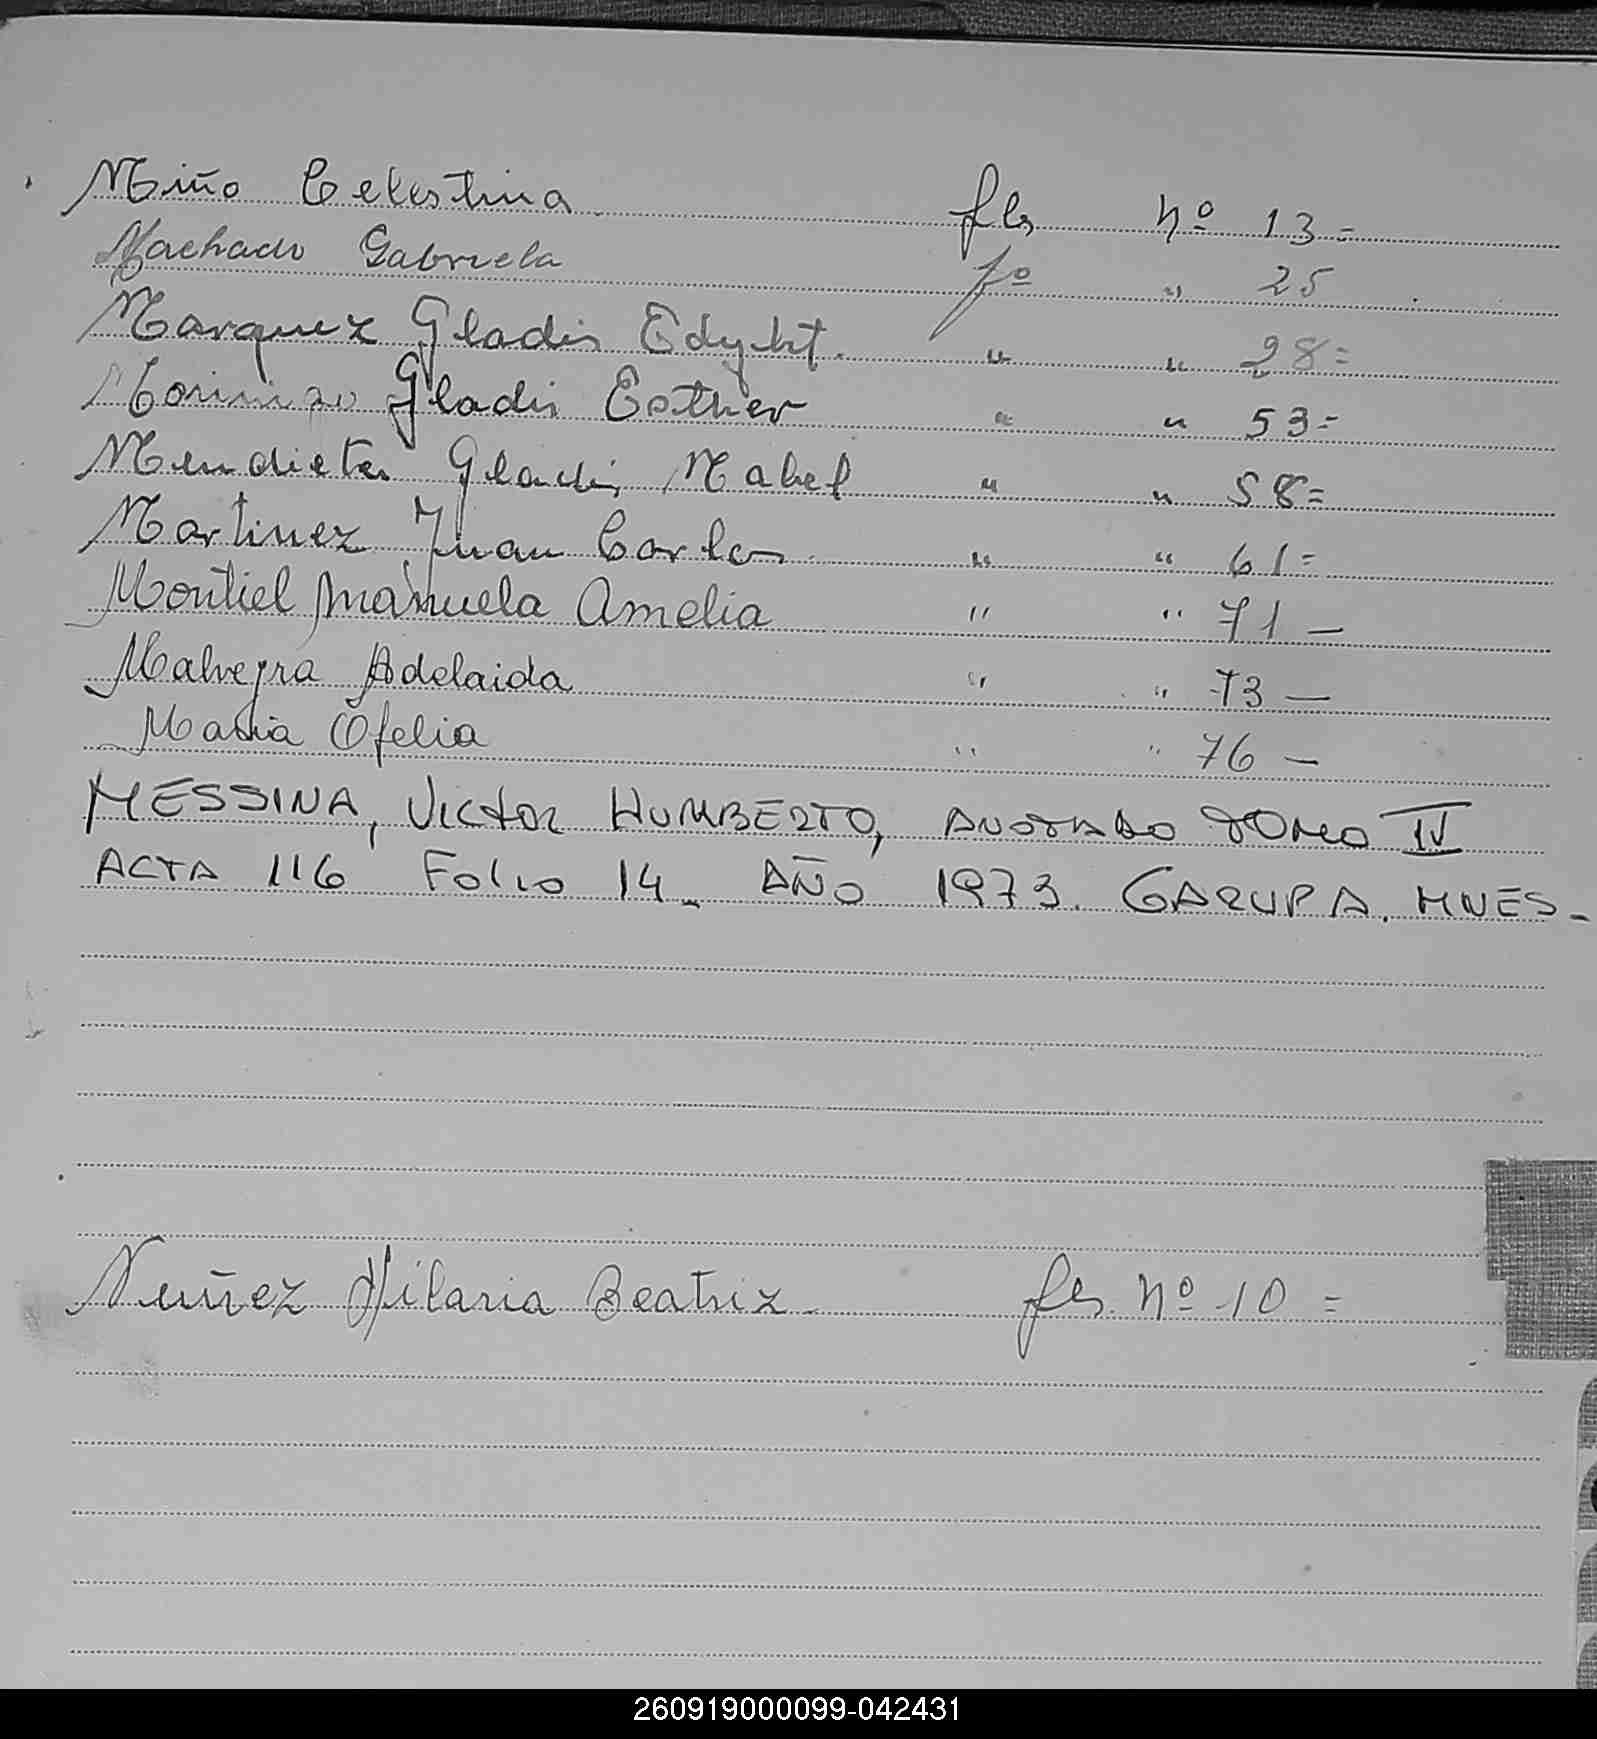 Miño Celestina fls nº 13=
Machado Gabriela fº " 25
Marquez Gladis Edyht. " " 28=
Gladis Esther " " 53=
Mendieta Gladis Mabel " " 58=
Martinez Juan Carlos " " 61=
Montiel Manuela Amelia " " 71 —
Malveyra Adelaida " " 73 —
Maria Ofelia " " 76 —
MESSINA, VICTOR HUMBERTO, ANOTADO TOMO IV
ACTA 116 FOLIO 14_ AÑO 1973. GARUPA. MNES-
Nuñez Hilaria Beatriz fls. nº 10 =
260919000099-042431